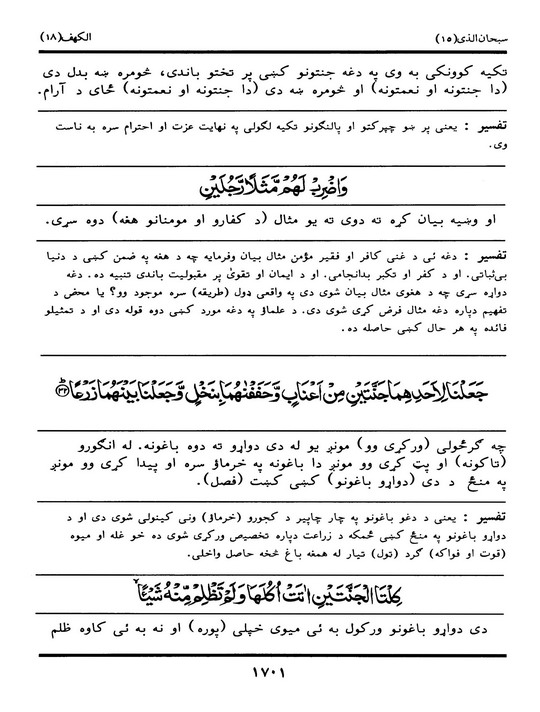 سبحان الذی(۱۵)
الکهف(۱۸)
تکیه کوونکی به وی په دغه جنتونو کښی پر تختو باندی، څومره ښه بدل دی
(دا جنتونه او نعمتونه) او څومره ښه دی (دا جنتونه او نعمتونه) ځای د آرام.
تفسیر : یعنی پر ښو چپرکتو او پالنګونو تکیه لګولی په نهایت عزت او احترام سره به ناست
وی.
وَاضْرِبْ لَهُمْ مَّثَلًا رَّجُلَيْنِ
او وښیه بیان کړه ته دوی ته یو مثال (د کفارو او مومنانو هغه) دوه سړی.
تفسیر : دغه ئی د غنی کافر او فقیر مؤمن مثال بیان وفرمایه چه د هغه په ضمن کښی د دنیا
بی‌ثباتی. او د کفر او تکبر بدانجامی. او د ایمان او تقویٰ پر مقبولیت باندی تنبیه ده. دغه
دواړه سړی چه د هغوی مثال بیان شوی دی په واقعی ډول (طریقه) سره موجود وو؟ یا محض د
تفهیم دپاره دغه مثال فرض کړی شوی دی. د علماؤ په دغه مورد کښی دوه قوله دی او د تمثیلو
فائده په هر حال کښی حاصله ده.
جَعَلْنَا لِاَحَدِهِمَا جَنَّتَيْنِ مِنْ اَعْنَابٍ وَّحَفَفْنٰهُمَا بِنَخْلٍ وَّجَعَلْنَا بَيْنَهُمَا زَرْعًا ﴿۳۲﴾
چه ګرځولی (ورکړی وو) مونږ یو له دی دواړو ته دوه باغونه. له انګورو
(تاکونه) او پټ کړی وو مونږ دا باغونه په خرماؤ سره او پیدا کړی وو مونږ
په منځ د دی (دواړو باغونو) کښی کښت (فصل).
تفسیر : یعنی د دغو باغونو په چار چاپیر د کجورو (خرماؤ) ونی کینولی شوی دی او د
دواړو باغونو په منځ کښی ځمکه د زراعت دپاره تخصیص ورکړی شوی ده خو غله او میوه
(قوت او فواکه) ګرد (ټول) تیار له همغه باغ څخه حاصل واخلی.
كِلْتَا الْجَنَّتَيْنِ اٰتَتْ اُكُلَهَا وَلَمْ تَظْلِمْ مِّنْهُ شَيْـًٔا
دی دواړو باغونو ورکول به ئی میوی خپلی (پوره) او نه به ئی کاوه ظلم
۱۷۰۱